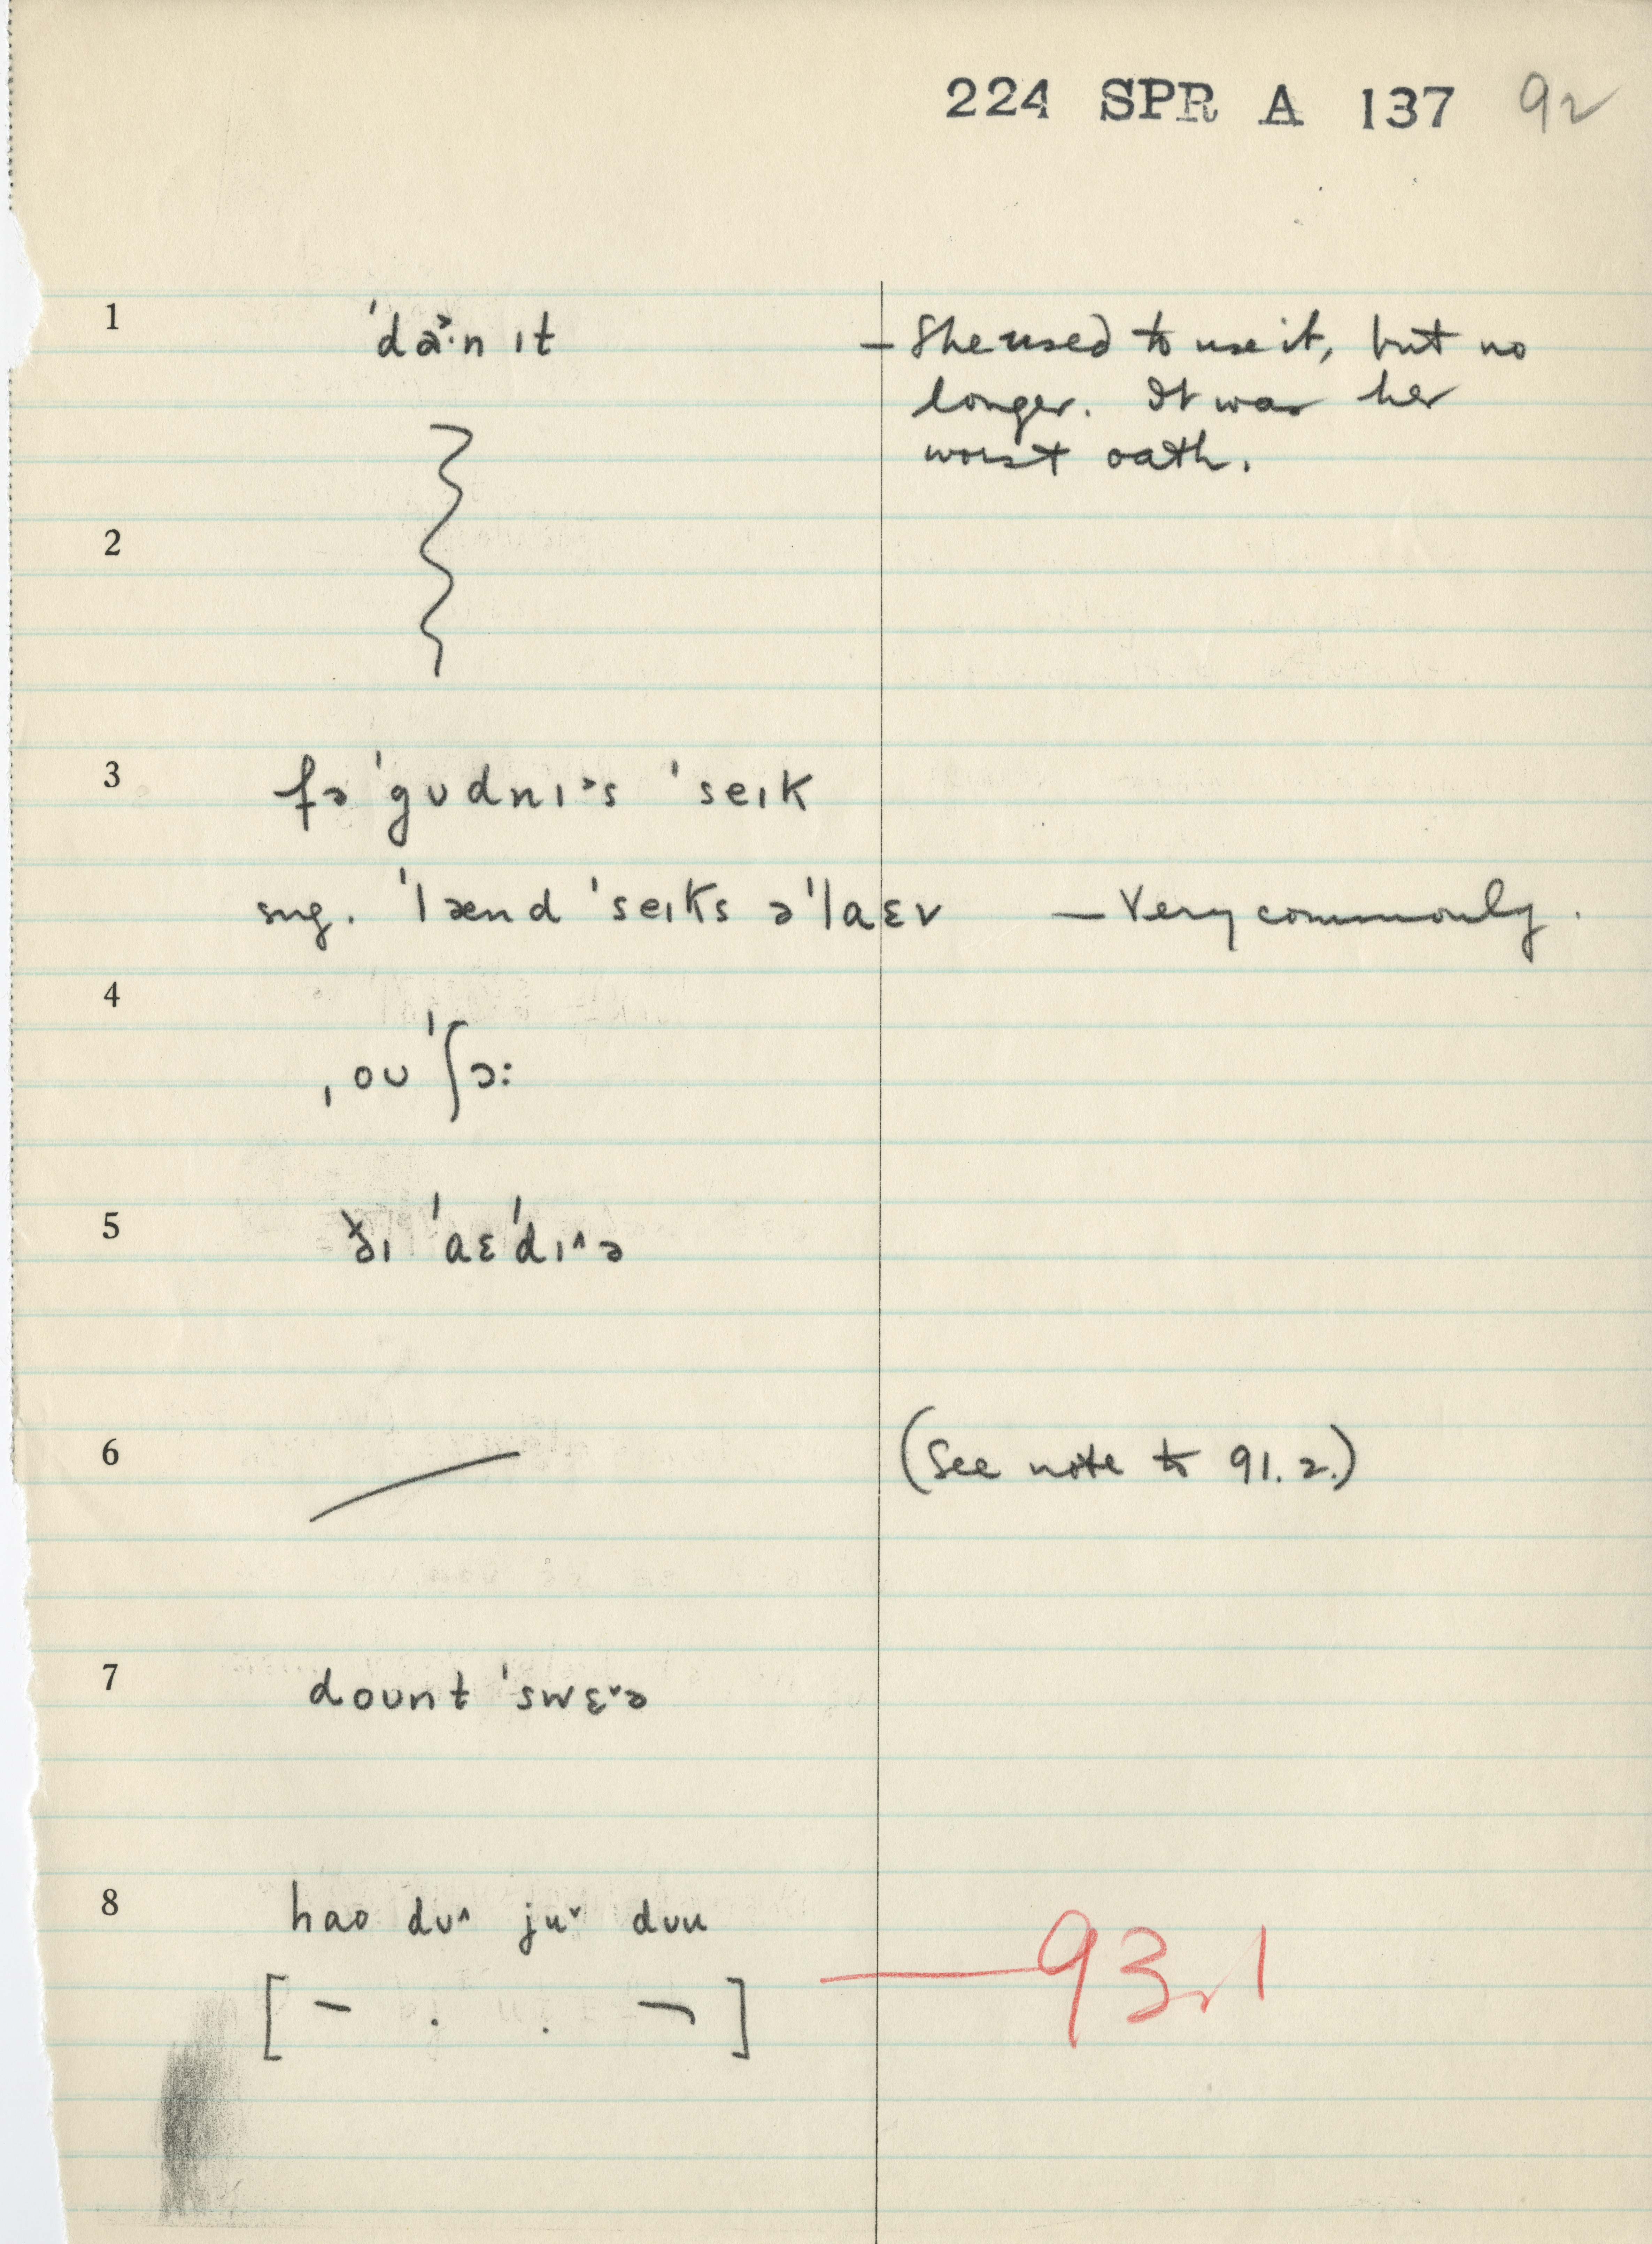 224 SPR A 137 92
1 ˈda˃·n ɪt – She used to use it, but no
longer. It was her
worst oath.
2
3 fə ˈgʊdnɪ˃s ˈseɪk
sug. ˈlænd ˈseɪks əˈlaɛv – Very commonly.
4
ˌoʊ ˈʃɔ:
5 ðɪ ˈaɛˈdɪ^ə
6 (See note to 91.2.)
7 doʊnt ˈswɛ˅ə
8 hao dʊ^ ju˅ dʊu
[ – . . ¬ ] — 93.1